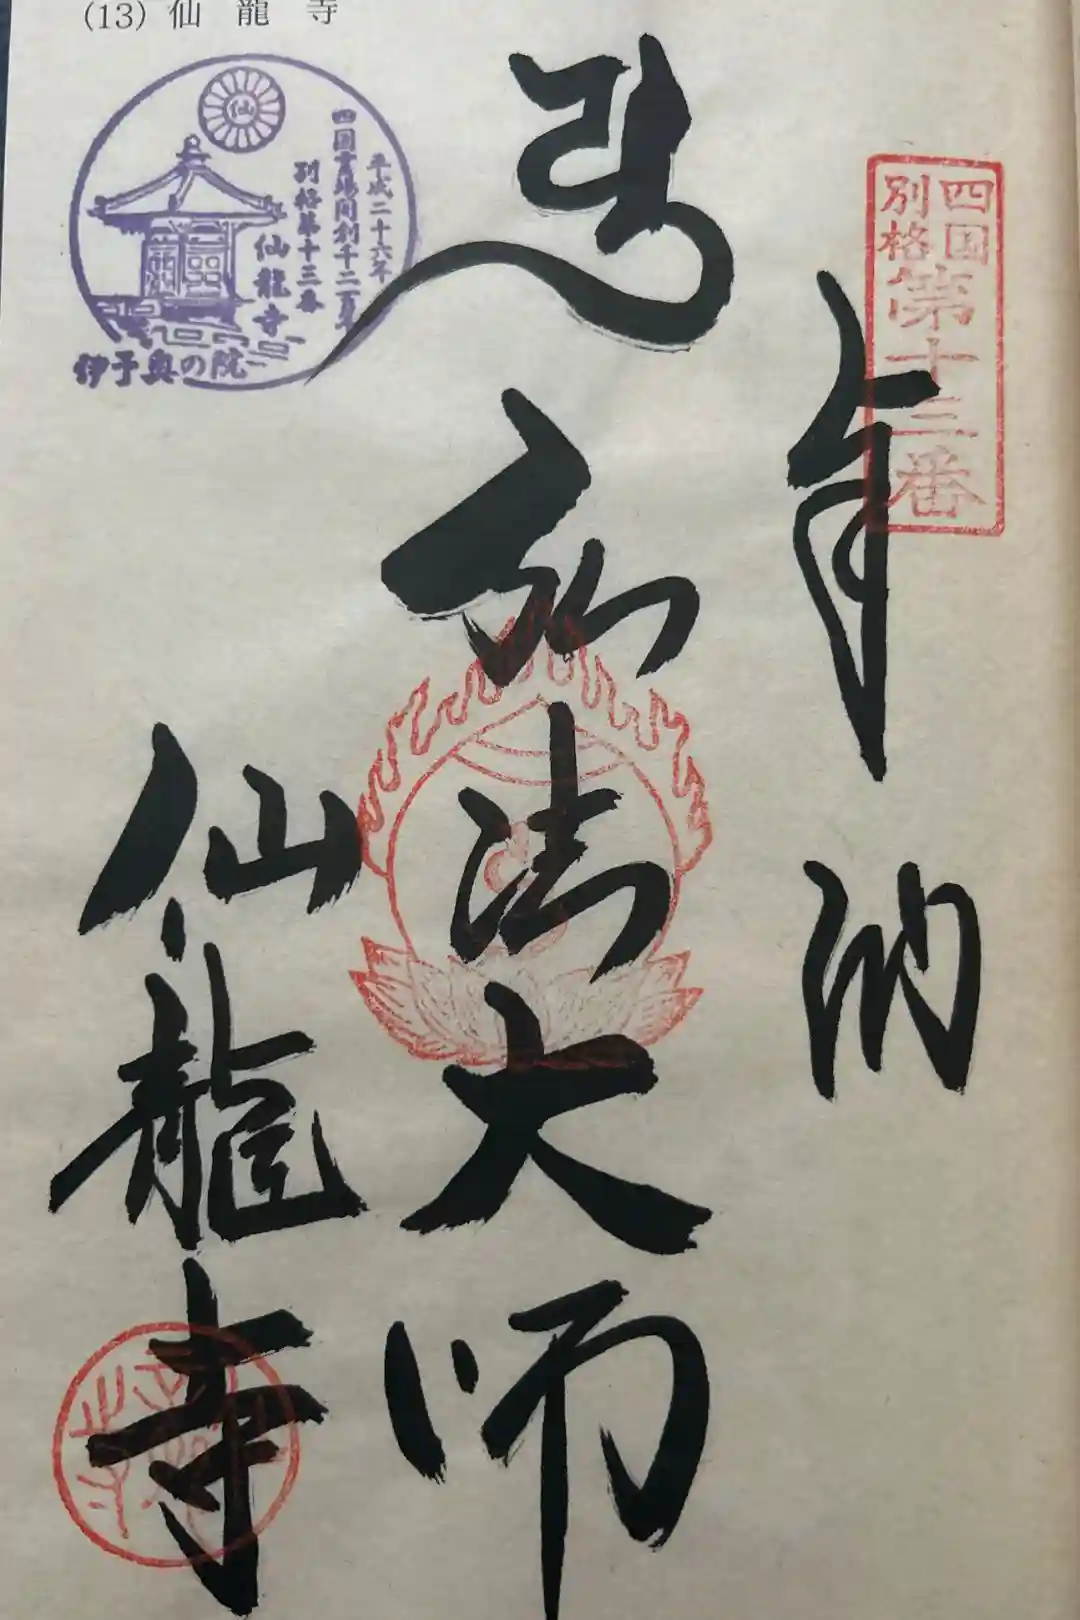 (13) 仙龍寺
四国
別格
第十三番
奉納
弘法大師
仙龍寺
仙
平成二十六年
四国霊場開創千二百年
別格第十三番
仙龍寺
伊予奥の院